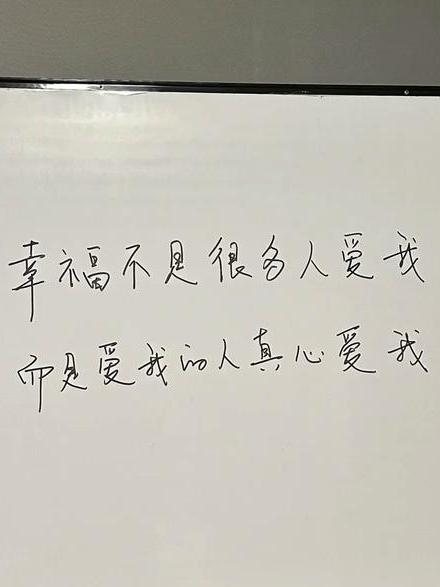 幸福不是很多人爱我
而是爱我的人真心爱我